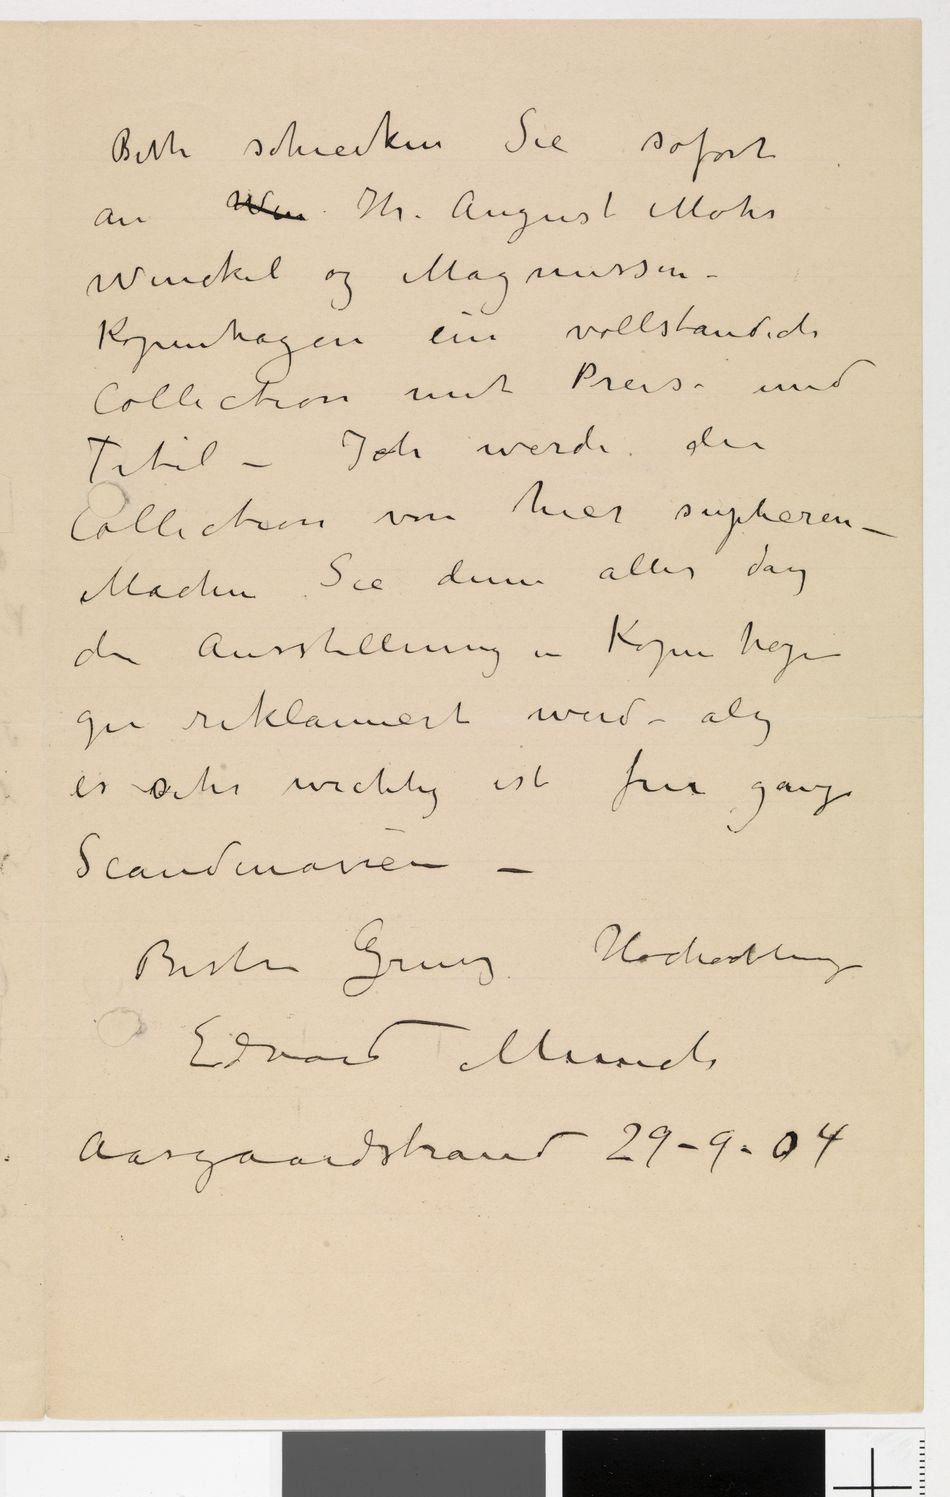 Bitte schiecken Sie sofort
an Hr. August Mohr
Winckel og Magnussen –
Kopenhagen ein vollstandich
Collection mit Preis. und
Titel – Ich werde die
Collection von hier supleren –
Machen Sie denn alles das
die Ausstellung in Kopenhag
gu reklamiert wird – als
es sehr wichtig ist fur ganz
Scandinavien –
Besten Gruss Hochachtung
Edvard Munch
Aasgaardstrand 29–9–04